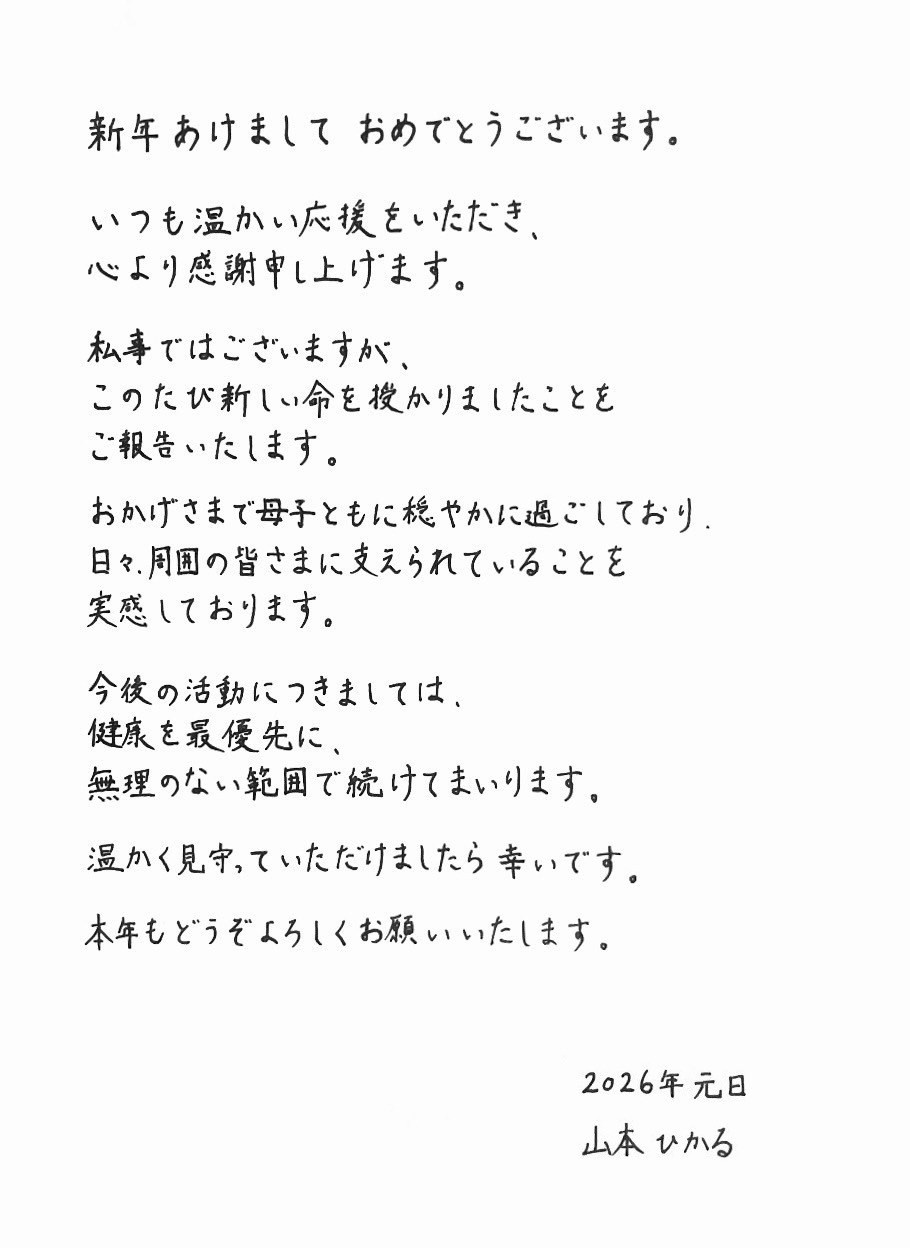 新年 あけまして おめでとうございます。
いつも温かい応援をいただき、
心より感謝申し上げます。
私事ではございますが、
このたび新しい命を授かりましたことを
ご報告いたします。
おかげさまで母子ともに穏やかに過ごしており、
日々、周囲の皆さまに支えられていることを
実感しております。
今後の活動につきましては、
健康を最優先に、
無理のない範囲で続けてまいります。
温かく見守っていただけましたら幸いです。
本年もどうぞよろしくお願いいたします。
2026年 元日
山本 ひかる